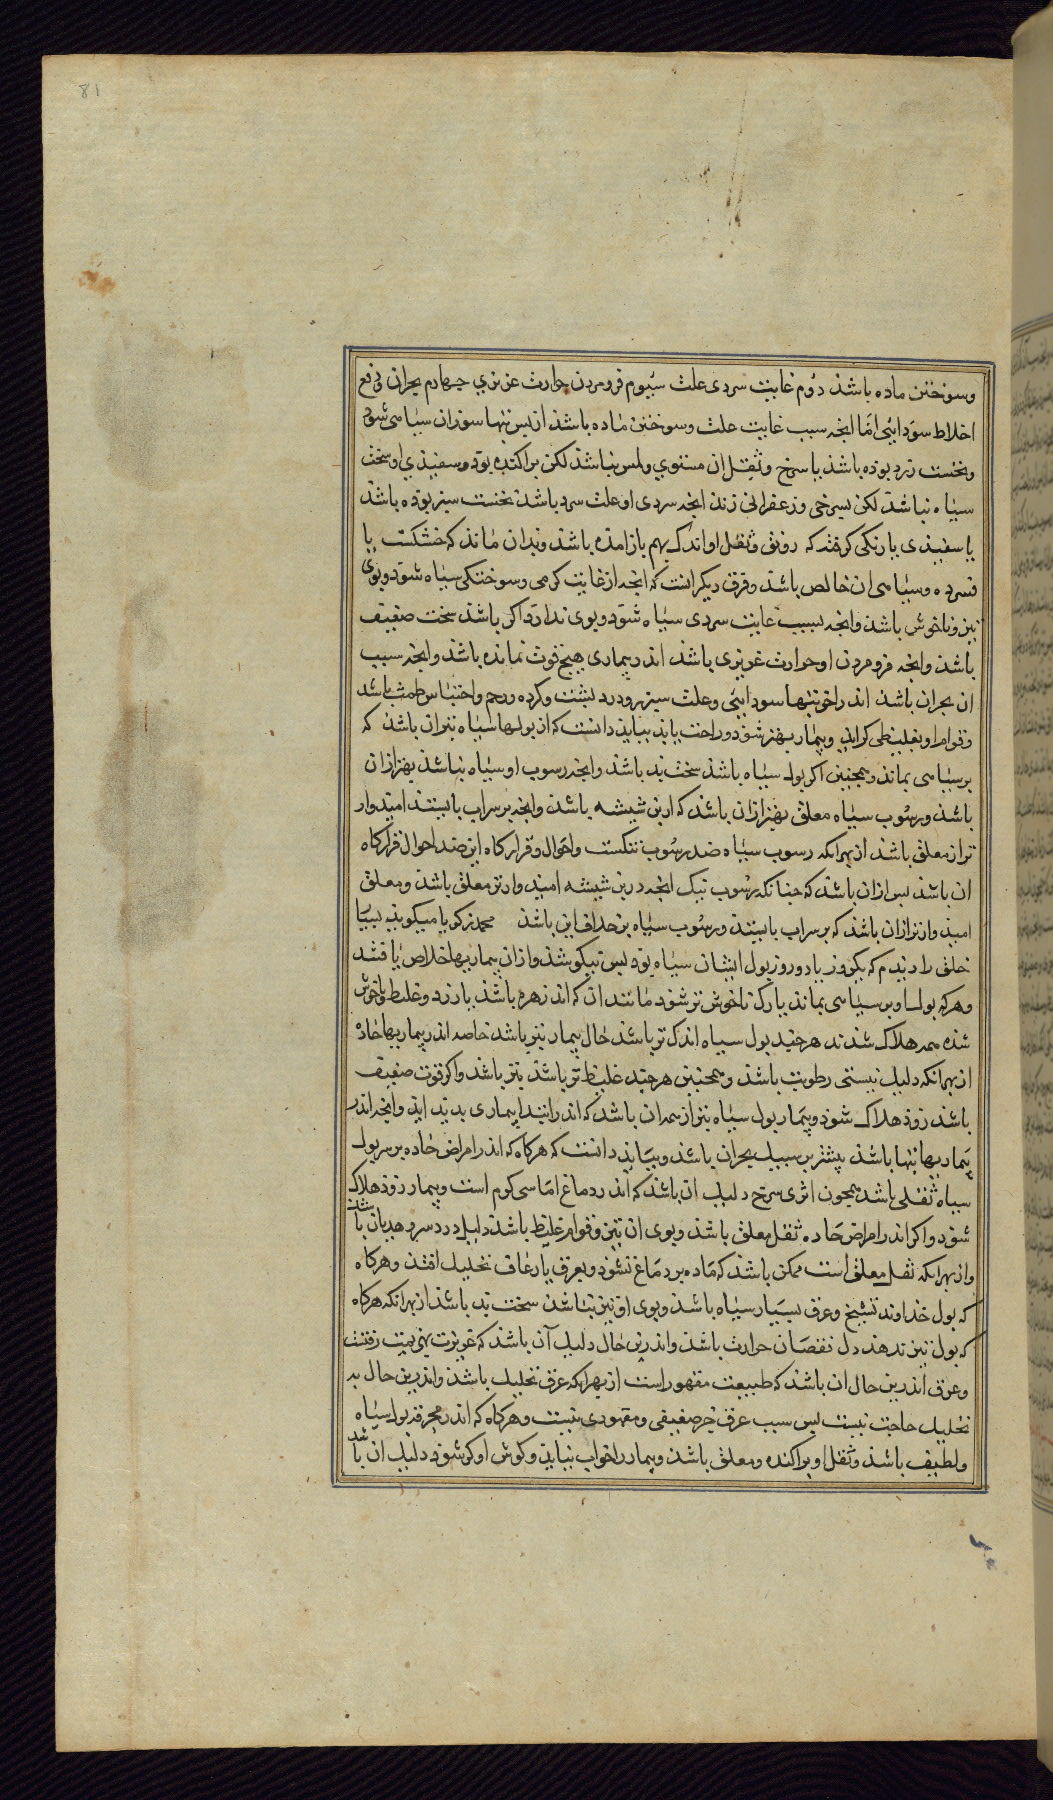 81
وسوختن ماده باشد دوم غایت سردی علت سیوم فرو مردن حرارت غریزی چهارم بحران و دفع
اخلاط سودایی اما انچه سبب غایت علت وسوختن ماده باشد از پس تبها سوزان سیاهی شود
ونخست زرد بوده باشد یا سرخ وثقل ان مستوی واملس نباشد لکن پراکنده بود وسفیدی او سخت
سیاه نباشد لکن بسرخی وزعفرانی زند انچه سردی او علت سرد باشد نخست سبز بوده باشد
یا سفیدی با رنکی کرفته که رونق وثقل او اندک بهم باز امده باشد وبدان ماند که خشکست یا
فسرده وسیاهی ان خالص باشد وفرق دیکر انست که انچه از غایت کرمی وسوختکی سیاه شود وبوی
تیز وناخوش باشد وانچه بسبب غایت سردی سیاه شود وبوی ندارد اکر باشد سخت ضعیف
باشد وانچه فرو مردن او حرارت غریزی باشد اندر بیماری هیچ قوت نمانده باشد وانچه سبب
ان بحران باشد اندر اخر تبها سودایی وعلت سپرز ودرد پشت وکرده ورحم واحتباس طمث باشد
وقوام او بغلیظی کراید وبیمار بهتر شود وراحت یابد بباید دانست که از بولها سیاه بتر ان باشد که
بر سیاهی بماند وهمچنین اکر بول سیاه باشد سخت بد باشد وانچه رسوب او سیاه نباشد بهتر از ان
باشد ورسوب سیاه معلق بهتر از ان باشد که اندر بن شیشه باشد وانچه بر سر اب باستد امیدوار
تر از معلق باشد از بهر انکه رسوب سیاه ضد رسوب نیکست واحوال وقرارکاه این ضد احوال قرارکاه
ان باشد پس از ان باشد که چنانکه رسوب نیک انچه در بن شیشه امیدوارتر معلق باشد ومعلق
امیدوارتر از ان باشد که بر سر اب باستد ورسوب سیاه بر خلاف این باشد محمد زکریا میکوید بسیار
خلق را دیدم که یکروز یا دو روز بول ایشان سیاه بود پس نیکو شد واز ان بیماریها خلاص یافتند
وهر که بول او بر سیاهی بماند یا رنک ناخوش تر شود مانند ان که اندر هم باشد یا زرد وغلیظ وناخوش
شده همه هلاک شدند هر چند بول سیاه اندک تر باشد حال بیمار بتر باشد خاصه اندر بیماریها حاده
از بهر انکه دلیل نیستی رطوبت باشد وهمچنین هر چند غلیظ تر باشد بتر باشد واکر قوت ضعیف
باشد زود هلاک شود وبیمار بول سیاه بتر از همه ان باشد که اندر ابتدا بیماری بدید اید وانچه اندر
بیماریها تبها باشد بیشتر بر سبیل بحران باشد وبباید دانست که هرکاه که اندر امراض حاده بر سر بول
سیاه ثقلی باشد همچون اثری سرخ دلیل ان باشد که اندر دماغ اماسی کرم است وبیمار زود هلاک
شود واکر اندر امراض حاده ثقل معلق باشد وبوی ان تیز وقوام غلیظ باشد دلیل درد سر وهذیان باشد
واز بهر انکه ثقل معلق است ممکن باشد که ماده بر دماغ نشود وبعرق یا رعاف تحلیل افتد وهرکاه
که بول خداوند تشنج وعرق بسیار سیاه باشد وبوی او تیز نباشد سخت بد باشد از بهر انکه هرکاه
که بول تیز ندهد دل نقصان حرارت باشد واندرین حال دلیل آن باشد که غریزت بهزیمت رفتست
وعرق اندرین حال ان باشد که طبیعت مقهور است از بهر انکه عرق تحلیل باشد واندرین حال به
تحلیل حاجت نیست پس سبب عرق جز ضعیفی ومقهوری نیست وهرکاه که اندر محرقه بول سیاه
ولطیف باشد وثقل او پراکنده ومعلق باشد وبیمار را خواب نیاید وکوش او کر شود دلیل ان باشد